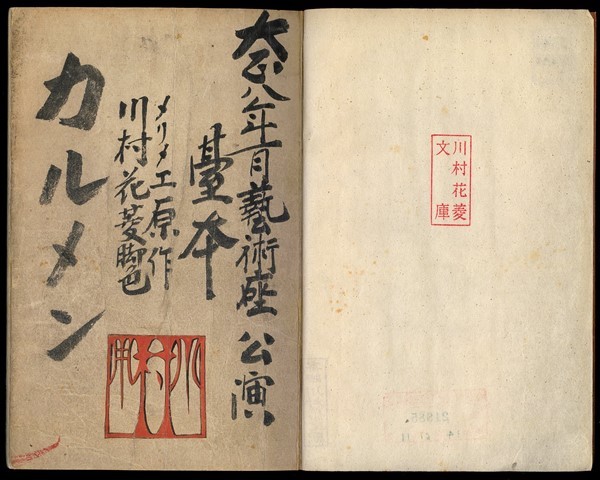 川村花菱
文庫
大正八年一月藝術座公演
臺本
メリメエ原作
川村花菱脚色
カルメン